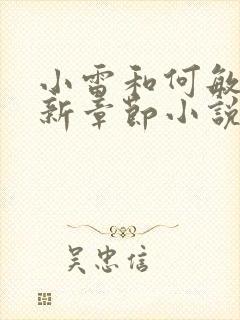 小雷和何敏
新章節小說
吴忠信